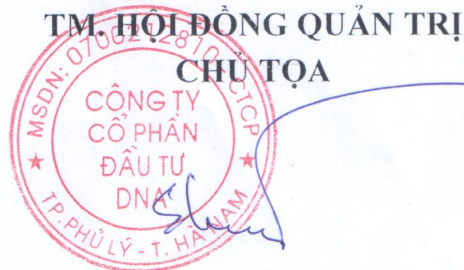 TM. HỘI ĐỒNG QUẢN TRỊ
CHỦ TỌA
MSDN: 0700212810 CTCP
CÔNG TY
CỔ PHẦN
ĐẦU TƯ
DNA
TP. PHỦ LÝ - T. HÀ NAM